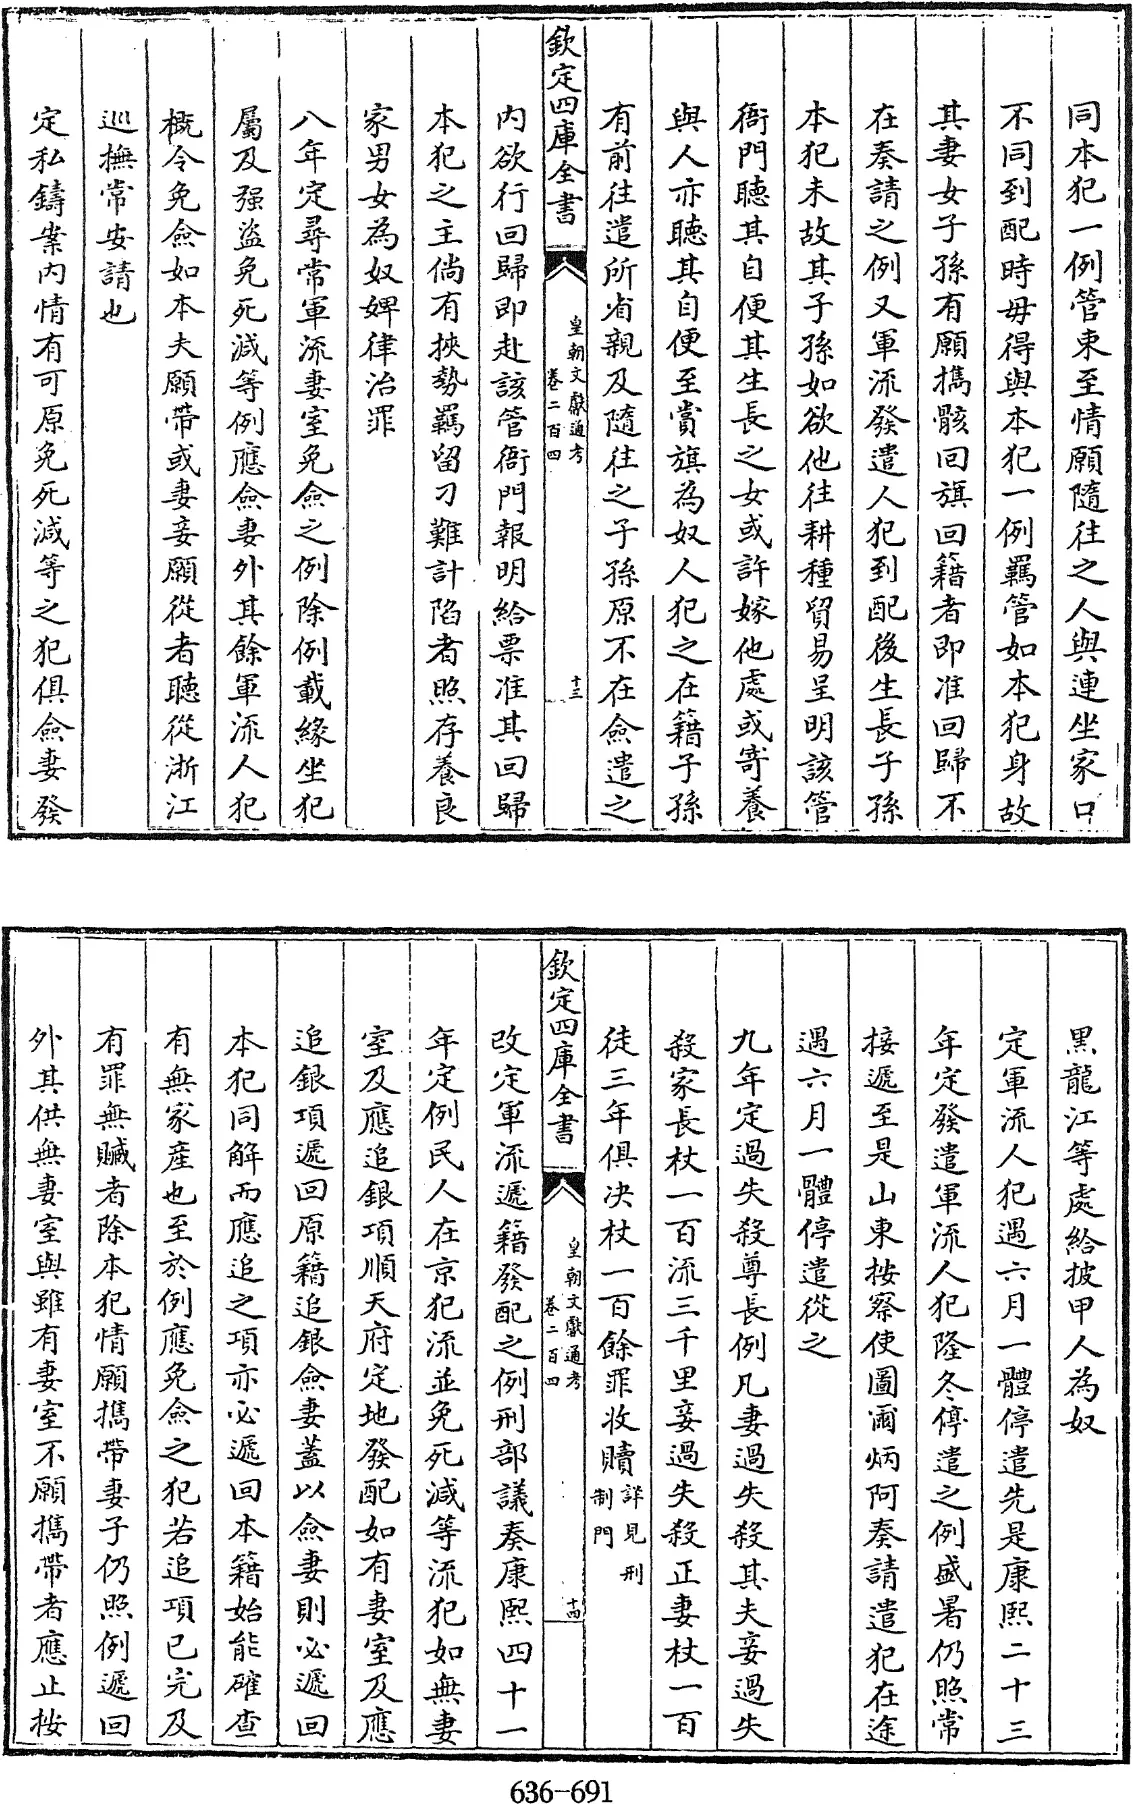 同本犯一例管束至情願隨往之人與連坐家口
不同到配時毋得與本犯一例羈管如本犯身故
其妻女子孫有願擕骸回旗回籍者即准回歸不
在奏請之例又軍流發遣人犯到配後生長子孫
本犯未故其子孫如欲他往耕種貿易呈明該管
衙門聽其自便其生長之女或許嫁他處或寄養
與人亦聽其自便至賞旗為奴人犯之在籍子孫
有前往遣所省親及隨往之子孫原不在僉遣之
欽定四庫全書
皇朝文獻通考
卷二百四
十三
内欲行回歸即赴該管衙門報明給票准其回歸
本犯之主倘有挾勢羈留刁難計陷者照存養良
家男女為奴婢律治罪
八年定尋常軍流妻室免僉之例除例載緣坐犯
屬及强盜免死減等例應僉妻外其餘軍流人犯
概令免僉如本夫願帶或妻妾願從者聽從浙江
巡撫常安請也
定私鑄案内情有可原免死減等之犯俱僉妻發
黑龍江等處給披甲人為奴
定軍流人犯遇六月一體停遣先是康熙二十三
年定發遣軍流人犯隆冬停遣之例盛暑仍照常
接遞至是山東按察使圖爾炳阿奏請遣犯在途
遇六月一體停遣從之
九年定過失殺尊長例凡妻過失殺其夫妾過失
殺家長杖一百流三千里妾過失殺正妻杖一百
徒三年俱决杖一百餘罪收贖詳見刑制門
欽定四庫全書
皇朝文獻通考
卷二百四
十四
改定軍流遞籍發配之例刑部議奏康熙四十一
年定例民人在京犯流並免死減等流犯如無妻
室及應追銀項順天府定地發配如有妻室及應
追銀項遞回原籍追銀僉妻蓋以僉妻則必遞回
本犯同解而應追之項亦必遞回本籍始能確查
有無家産也至於例應免僉之犯若追項已完及
有罪無贓者除本犯情願擕帶妻子仍照例遞回
外其供無妻室與雖有妻室不願擕帶者應止按
636-691